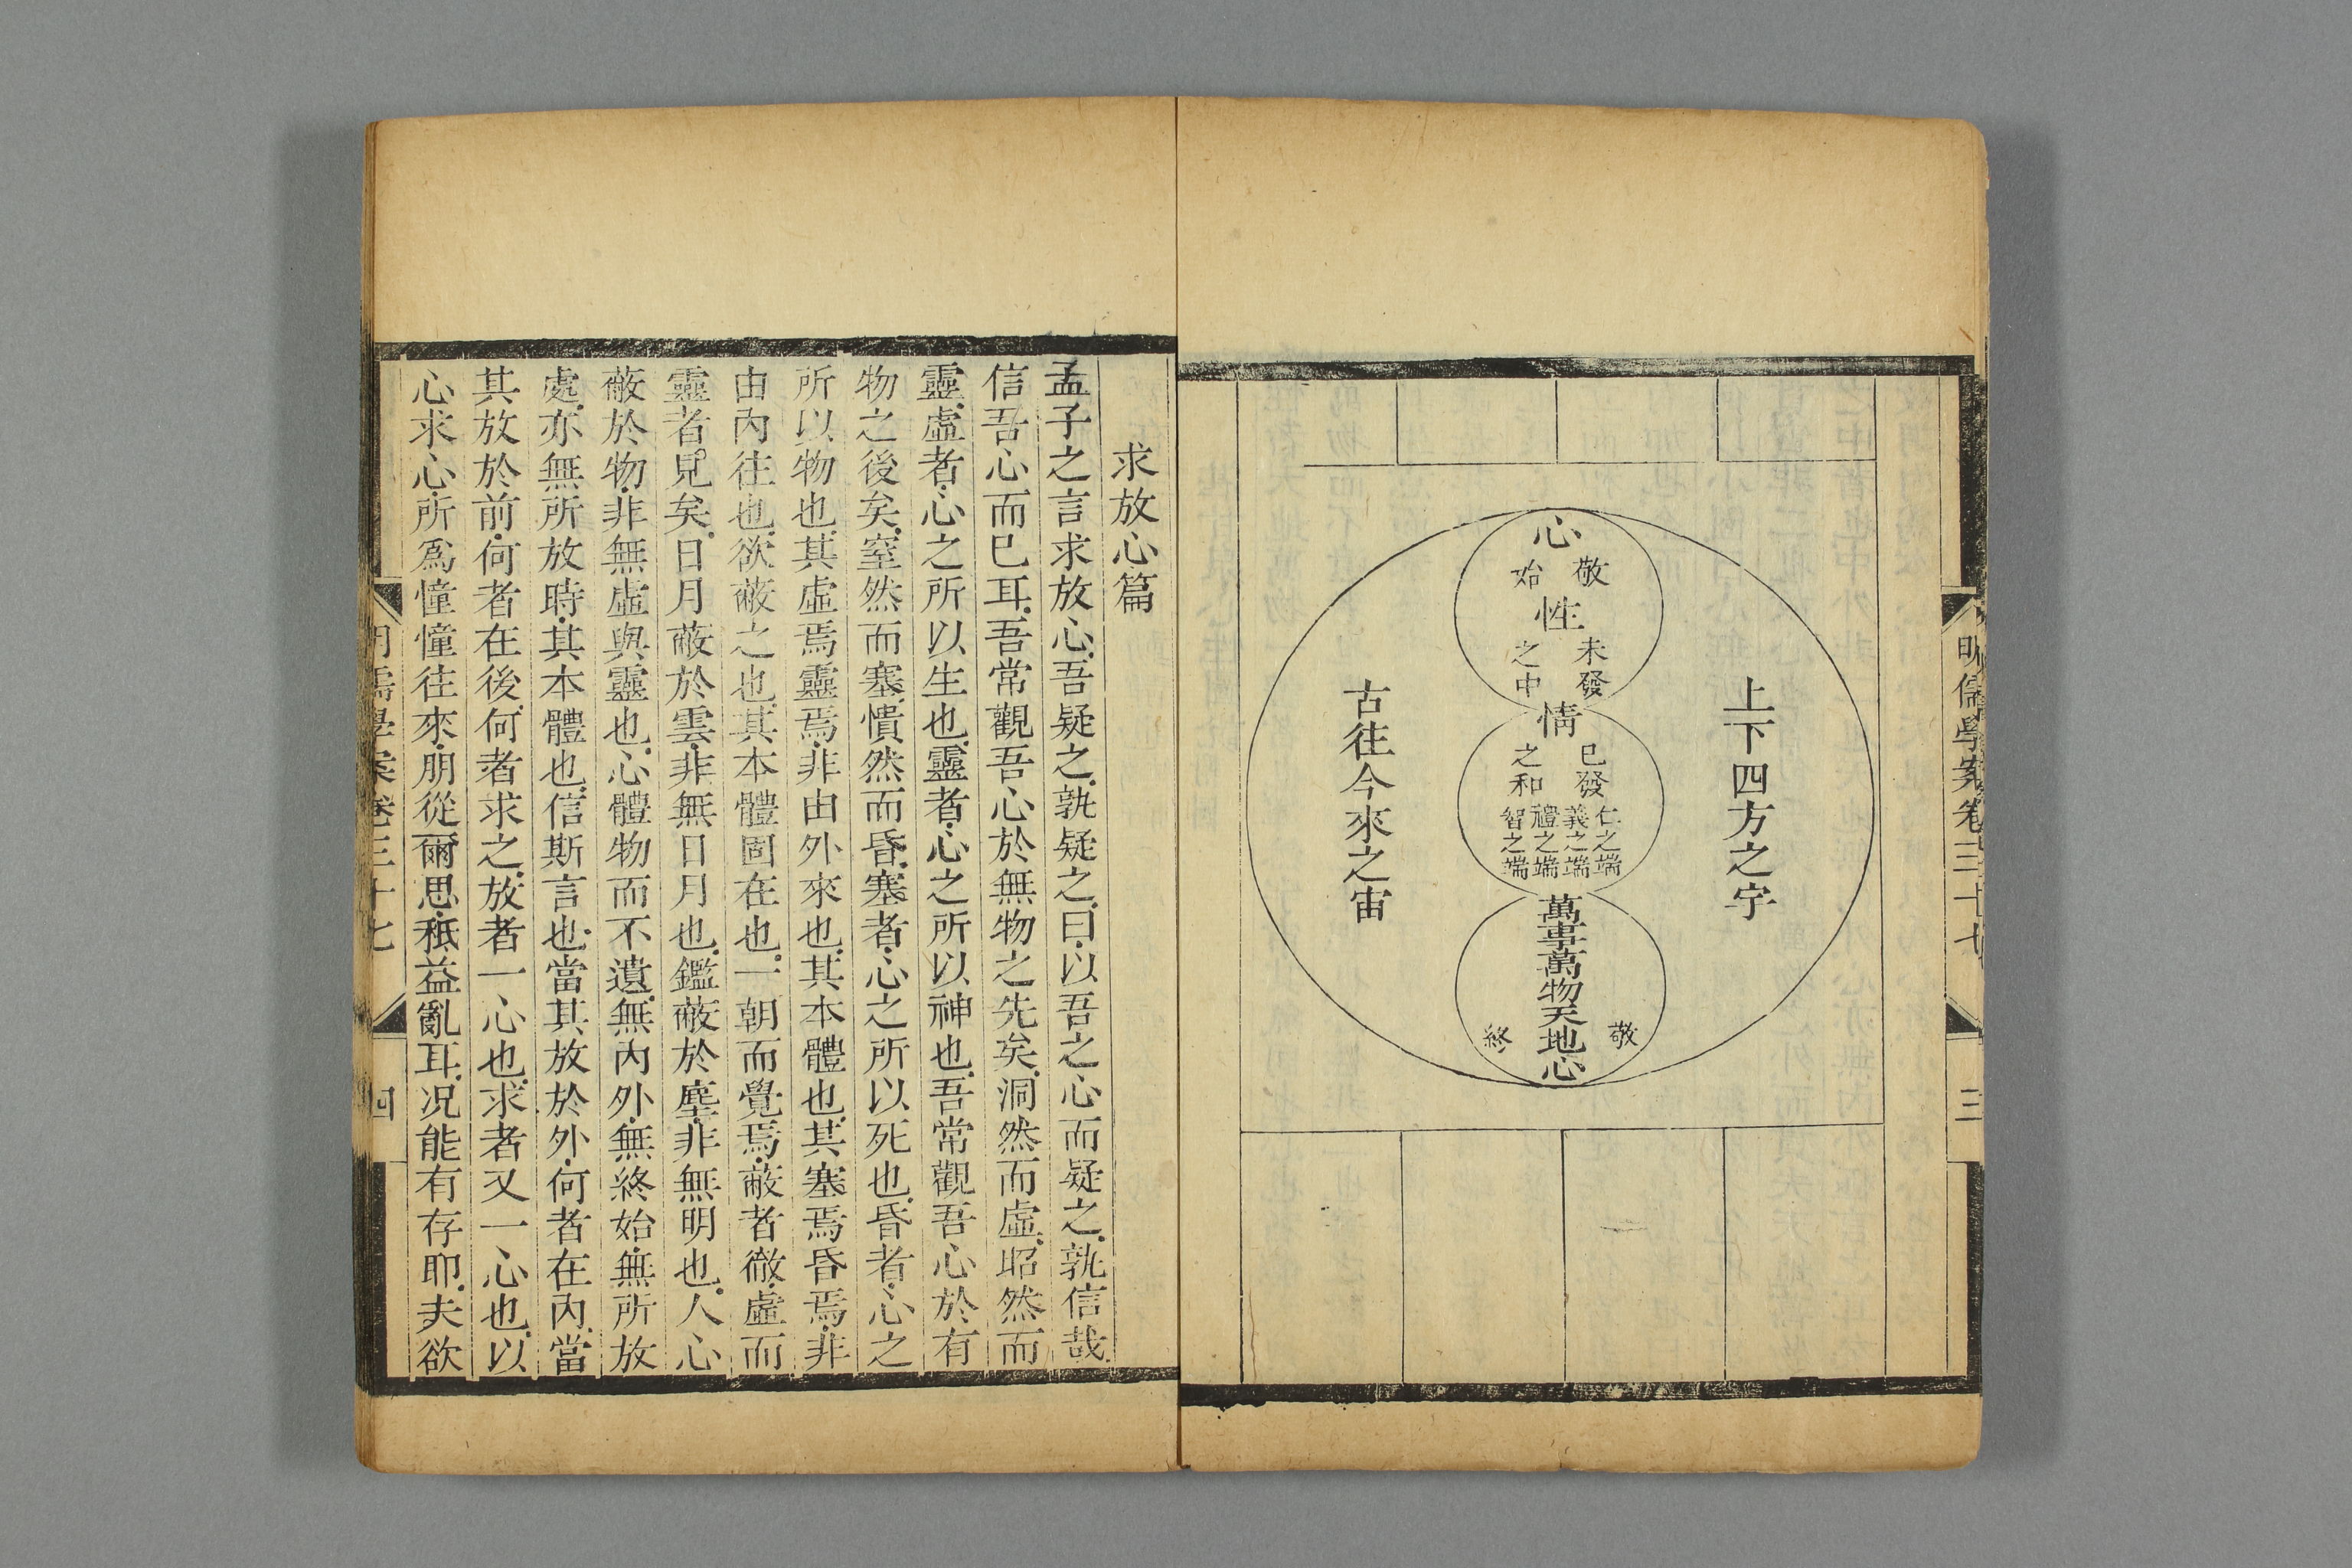 明儒學案卷三十七
三
上下四方之宇
心
敬
始
性
未發
之中
情
已發
之和
仁之端
義之端
禮之端
智之端
萬事萬物天地心
敬
終
古往今來之宙
求放心篇
孟子之言求放心吾疑之孰疑之曰以吾之心而疑之孰信哉
信吾心而已耳吾常觀吾心於無物之先矣洞然而虛昭然而
靈虛者心之所以生也靈者心之所以神也吾常觀吾心於有
物之後矣窒然而塞憒然而昏塞者心之所以死也昏者心之
所以物也其虛焉靈焉非由外來也其本體也其塞焉昏焉非
由內往也欲蔽之也其本體固在也一朝而覺焉蔽者徹虛而
靈者見矣日月蔽於雲非無日月也鑑蔽於塵非無明也人心
蔽於物非無虛與靈也心體物而不遺無內外無終始無所放
處亦無所放時其本體也信斯言也當其放於外何者在內當
其放於前何者在後何者求之放者一心也求者又一心也以
心求心所爲憧憧往來朋從爾思秪益亂耳况能有存耶夫欲
明儒學案卷三十七
四